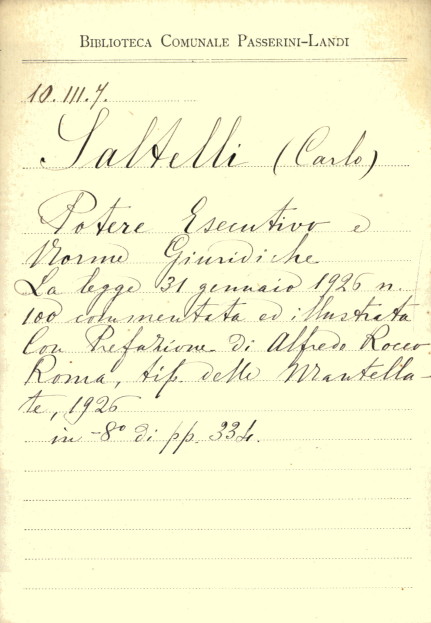 BIBLIOTECA COMUNALE PASSERINI-LANDI
10.III.7.
Saltelli (Carlo)
Potere Esecutivo e
Norme Giuridiche
La legge 31 gennaio 1926 n.
100 commentata ed illustrata
Con Prefazione di Alfredo Rocco
Roma, tip. delle Mantella-
te, 1926
in-8° di pp. 334.